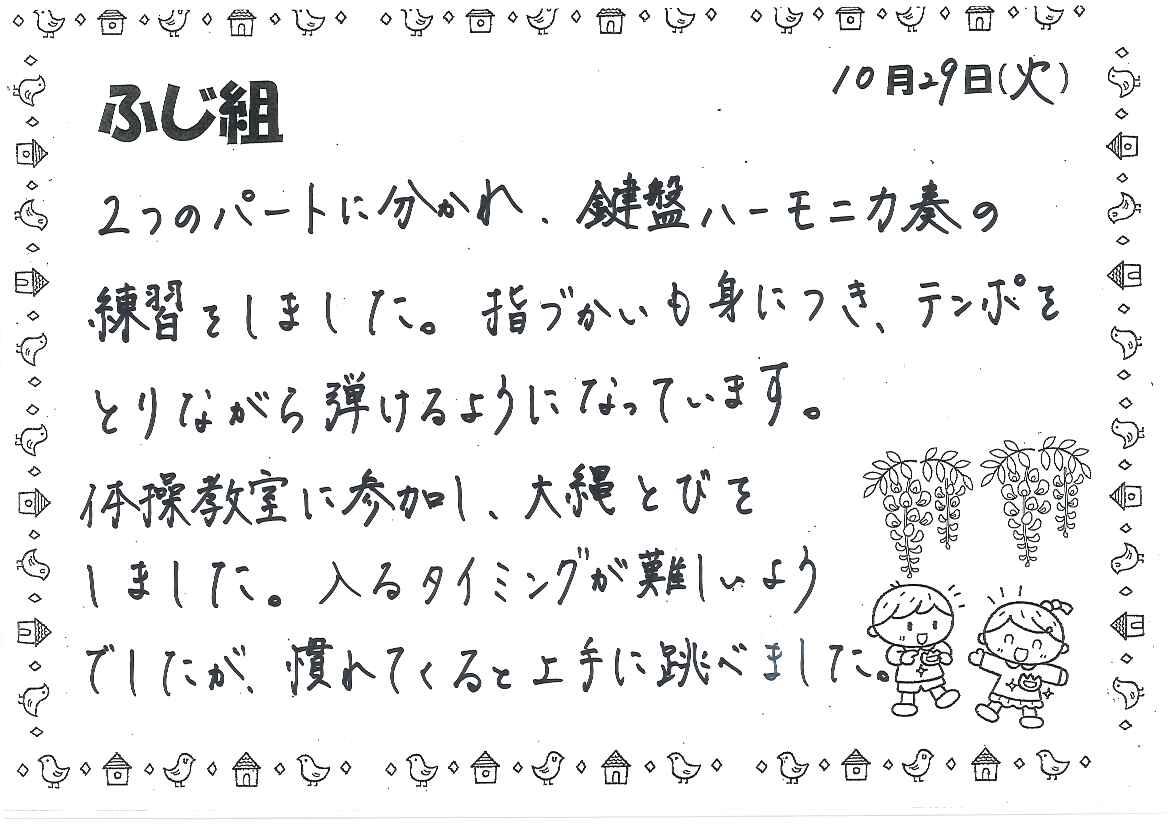 10月29日(火)
ふじ組
2つのパートに分かれ、鍵盤ハーモニカ奏の
練習をしました。指づかいも身につき、テンポを
とりながら弾けるようになっています。
体操教室に参加し、大縄とびを
しました。入るタイミングが難しいよう
でしたが、慣れてくると上手に跳べました。